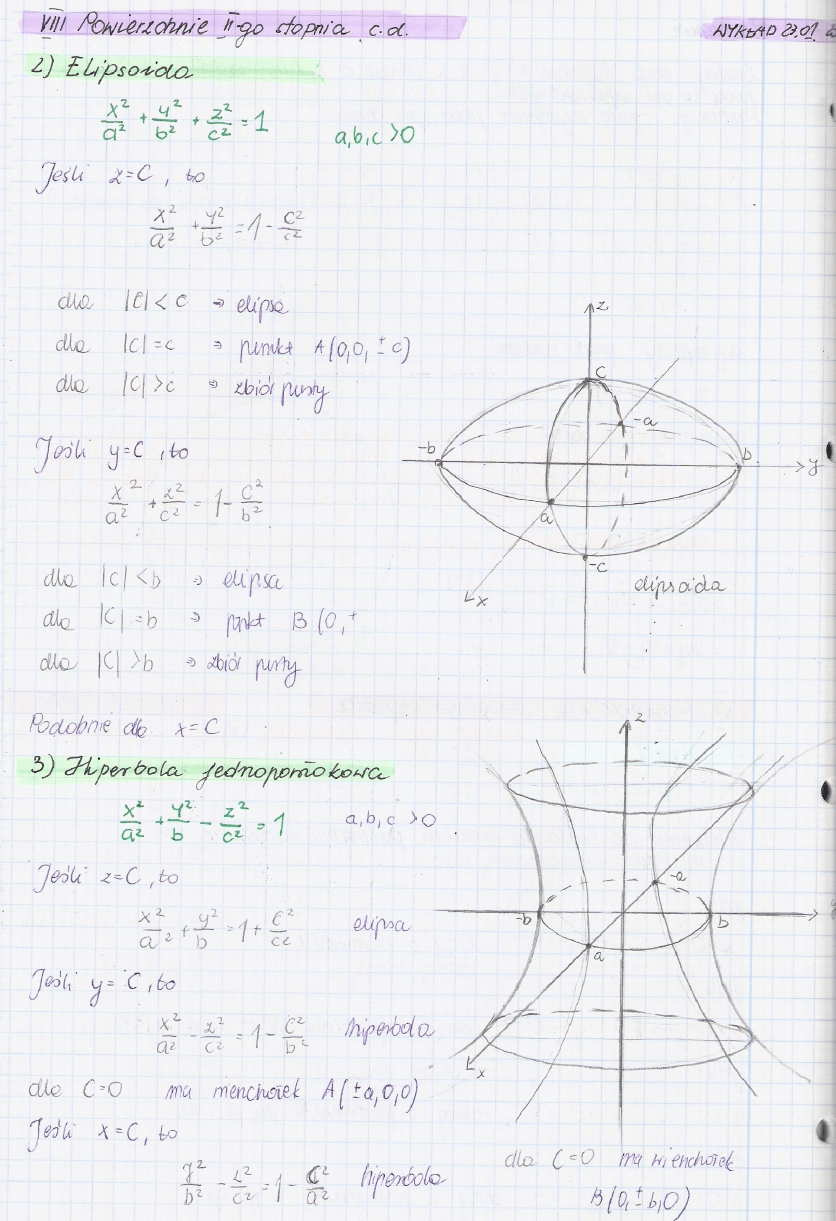 VIII Powierzchnie II-go stopnia c.d.
WYKŁAD 23.01
2) Elipsoida
x²/a² + y²/b² + z²/c² = 1 a,b,c >0
Jeśli z=C, to
x²/a² + y²/b² = 1 - C²/c²
dla |C| < c ⇒ elipsa
dla |C| = c ⇒ punkt A(0,0, ± c)
dla |C| > c ⇒ zbiór pusty
Jeśli y=C, to
x²/a² + z²/c² = 1 - C²/b²
dla |C| < b ⇒ elipsa
dla |C| = b ⇒ punkt B (0, ±
dla |C| > b ⇒ zbiór pusty
Podobnie dla x=C
z
c
-a
-b
b
y
a
-c
x
elipsoida
3) Hiperbola jednopowłokowa
x²/a² + y²/b - z²/c² = 1 a,b,c >0
Jeśli z=C, to
x²/a² + y²/b = 1 + C²/c² elipsa
Jeśli y=C, to
x²/a² - z²/c² = 1 - C²/b² hiperbola
dla C=0 ma wierzchołek A(±a,0,0)
Jeśli x=C, to
y²/b² - z²/c² = 1 - C²/a² hiperbola
z
-a
-b
b
a
x
dla C=0 ma wierzchołek
B(0,±b,0)